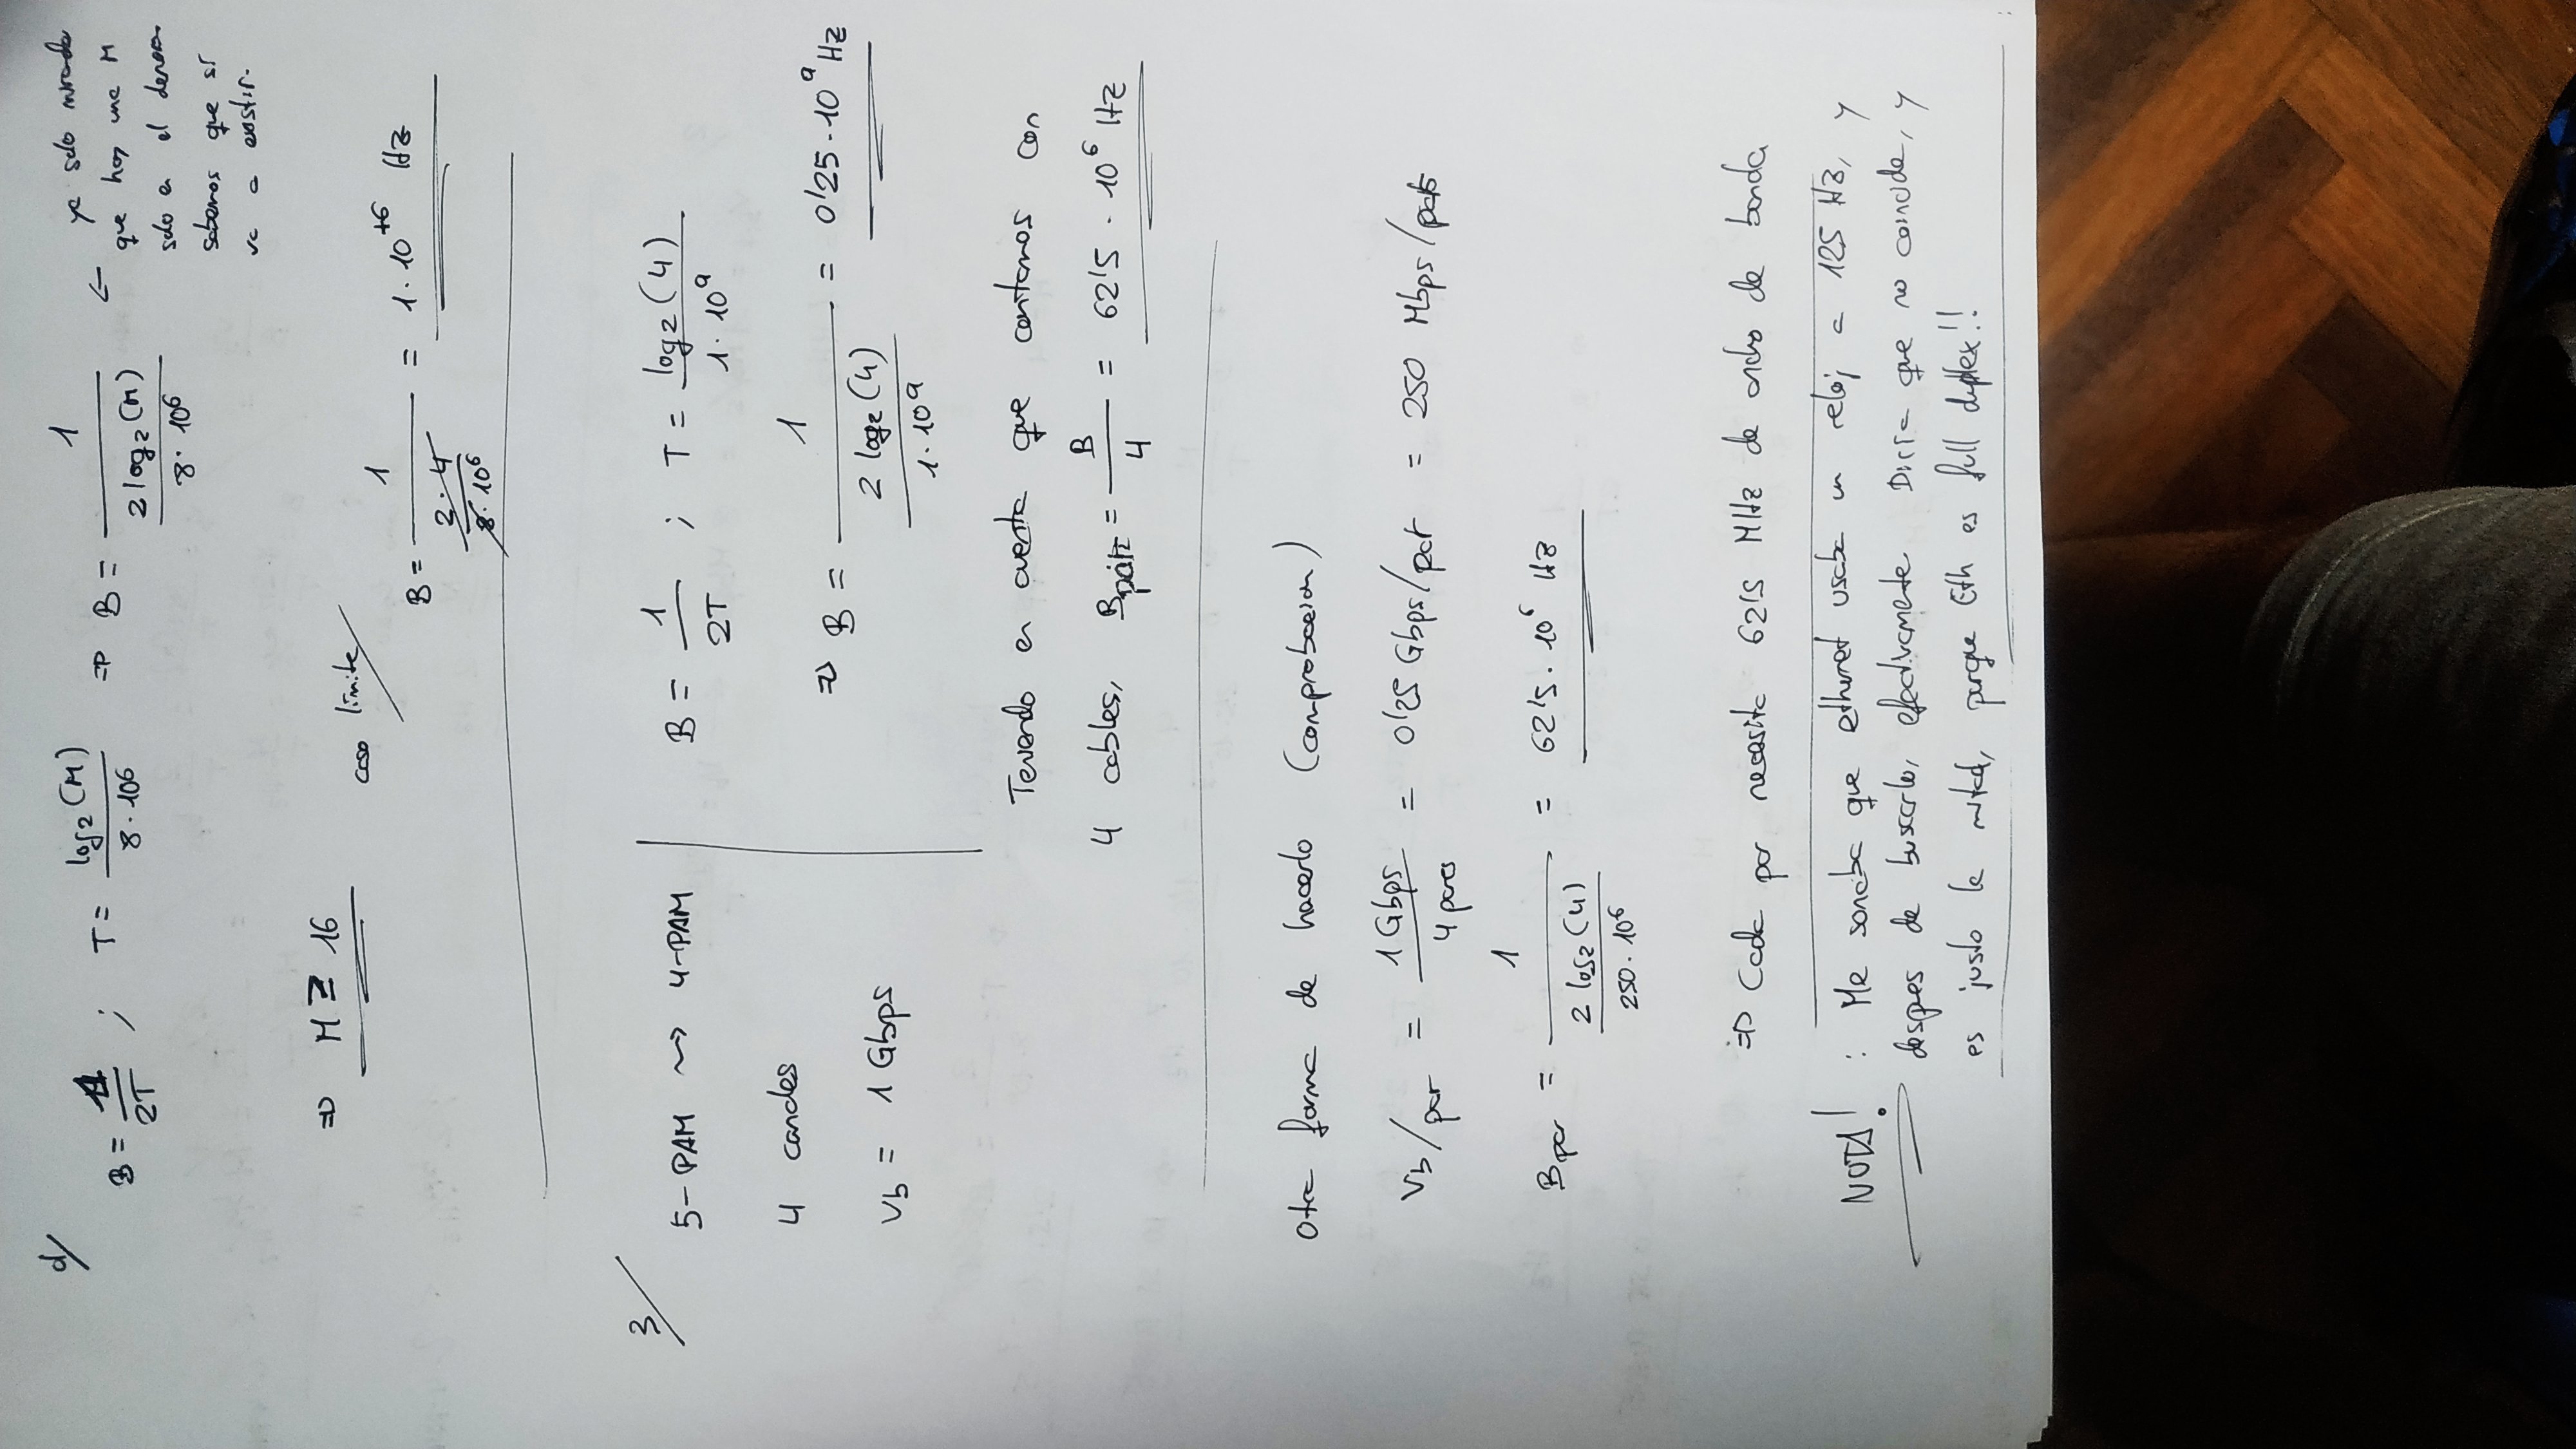 d/
B = 1/2T ; T = log₂(M)/8·10⁶ ⇒ B = 1/(2log₂(M)/8·10⁶) ← ya solo mirando
que hay una M
solo en el denom
sabemos que sí
va a existir.
⇒ M ≥ 16
caso límite
B = 1/(2·4/8·10⁶) = 1·10⁺⁶ Hz
3/
5-PAM ⇝ 4-PAM
4 canales
Vb = 1 Gbps
B = 1/2T ; T = log₂(4)/1·10⁹
⇒ B = 1/(2 log₂(4)/1·10⁹) = 0'25·10⁹ Hz
Teniendo en cuenta que contamos con
4 cables, Bpar = B/4 = 62'5 · 10⁶ Hz
Otra forma de hacerlo (comprobacion)
Vb/par = 1 Gbps/4 pares = 0'25 Gbps/par = 250 Mbps/par
Bpar = 1/(2 log₂(4)/250·10⁶) = 62'5·10⁶ Hz
⇒ Cada par necesita 62'5 MHz de ancho de banda
NOTA! : Me sonaba que ethernet usaba un reloj a 125 Hz, y
despues de buscarlo, efectivamente. Diria que no coincide, y
es justo la mitad, porque Eth es full duplex!!